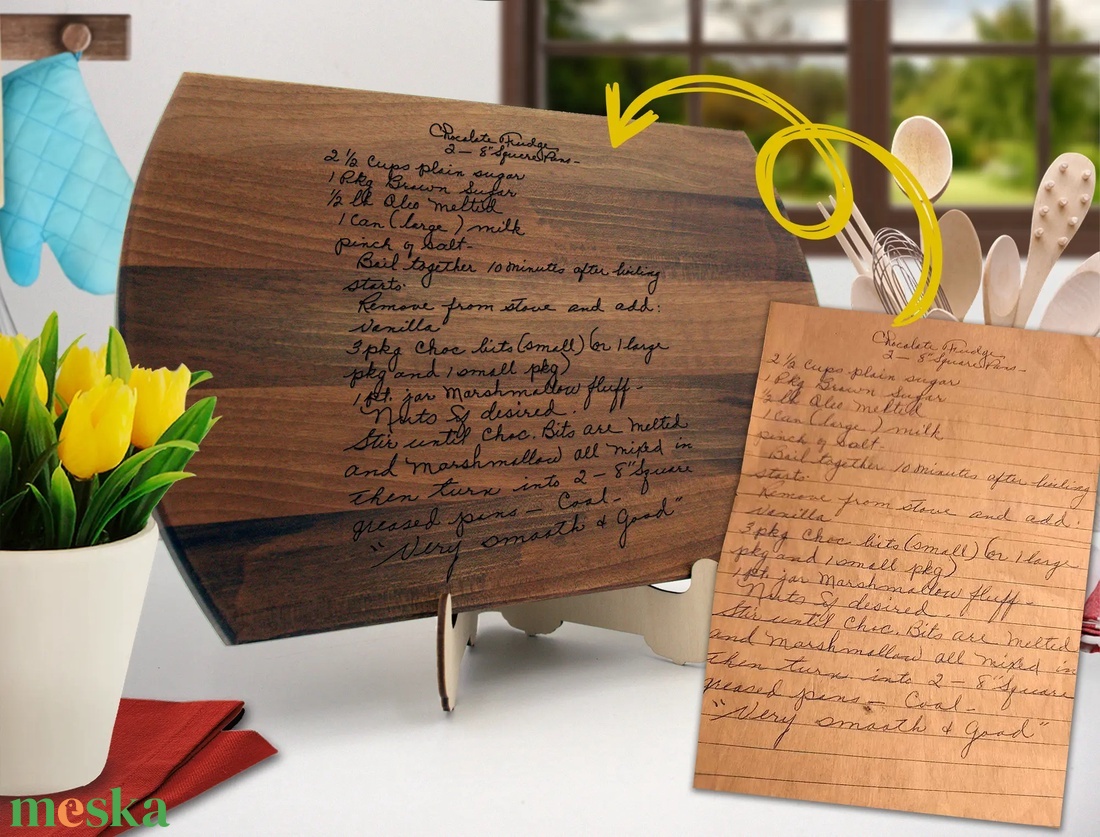 Chocolate Fudge
2 — 8" Square Pans —
2 1/2 Cups plain sugar
1 Pkg Brown Sugar
1/2 lb Oleo Melted
1 Can (large) milk
pinch of salt —
Boil together 10 minutes after boiling
starts.
Remove from stove and add:
Vanilla
3 pkg Choc bits (small) (or 1 large
pkg and 1 small pkg)
1 pt. jar Marshmallow fluff —
Nuts if desired.
Stir until Choc. Bits are Melted
and Marshmallow all mixed in
then turn into 2 — 8" Square
greased pans — Cool —
"Very smooth & Good"
Chocolate Fudge
2 — 8" Square Pans —
2 1/2 Cups plain sugar
1 Pkg Brown Sugar
1/2 lb Oleo Melted
1 Can (large) milk
pinch of salt
Boil together 10 minutes after boiling
starts.
Remove from stove and add:
Vanilla
3 pkg Choc bits (small) (or 1 large
pkg and 1 small pkg)
1 pt. jar Marshmallow fluff —
Nuts if desired.
Stir until Choc. Bits are Melted
and Marshmallow all mixed in
then turn into 2 — 8" Square
greased pans — Cool —
"Very smooth & Good"
meska